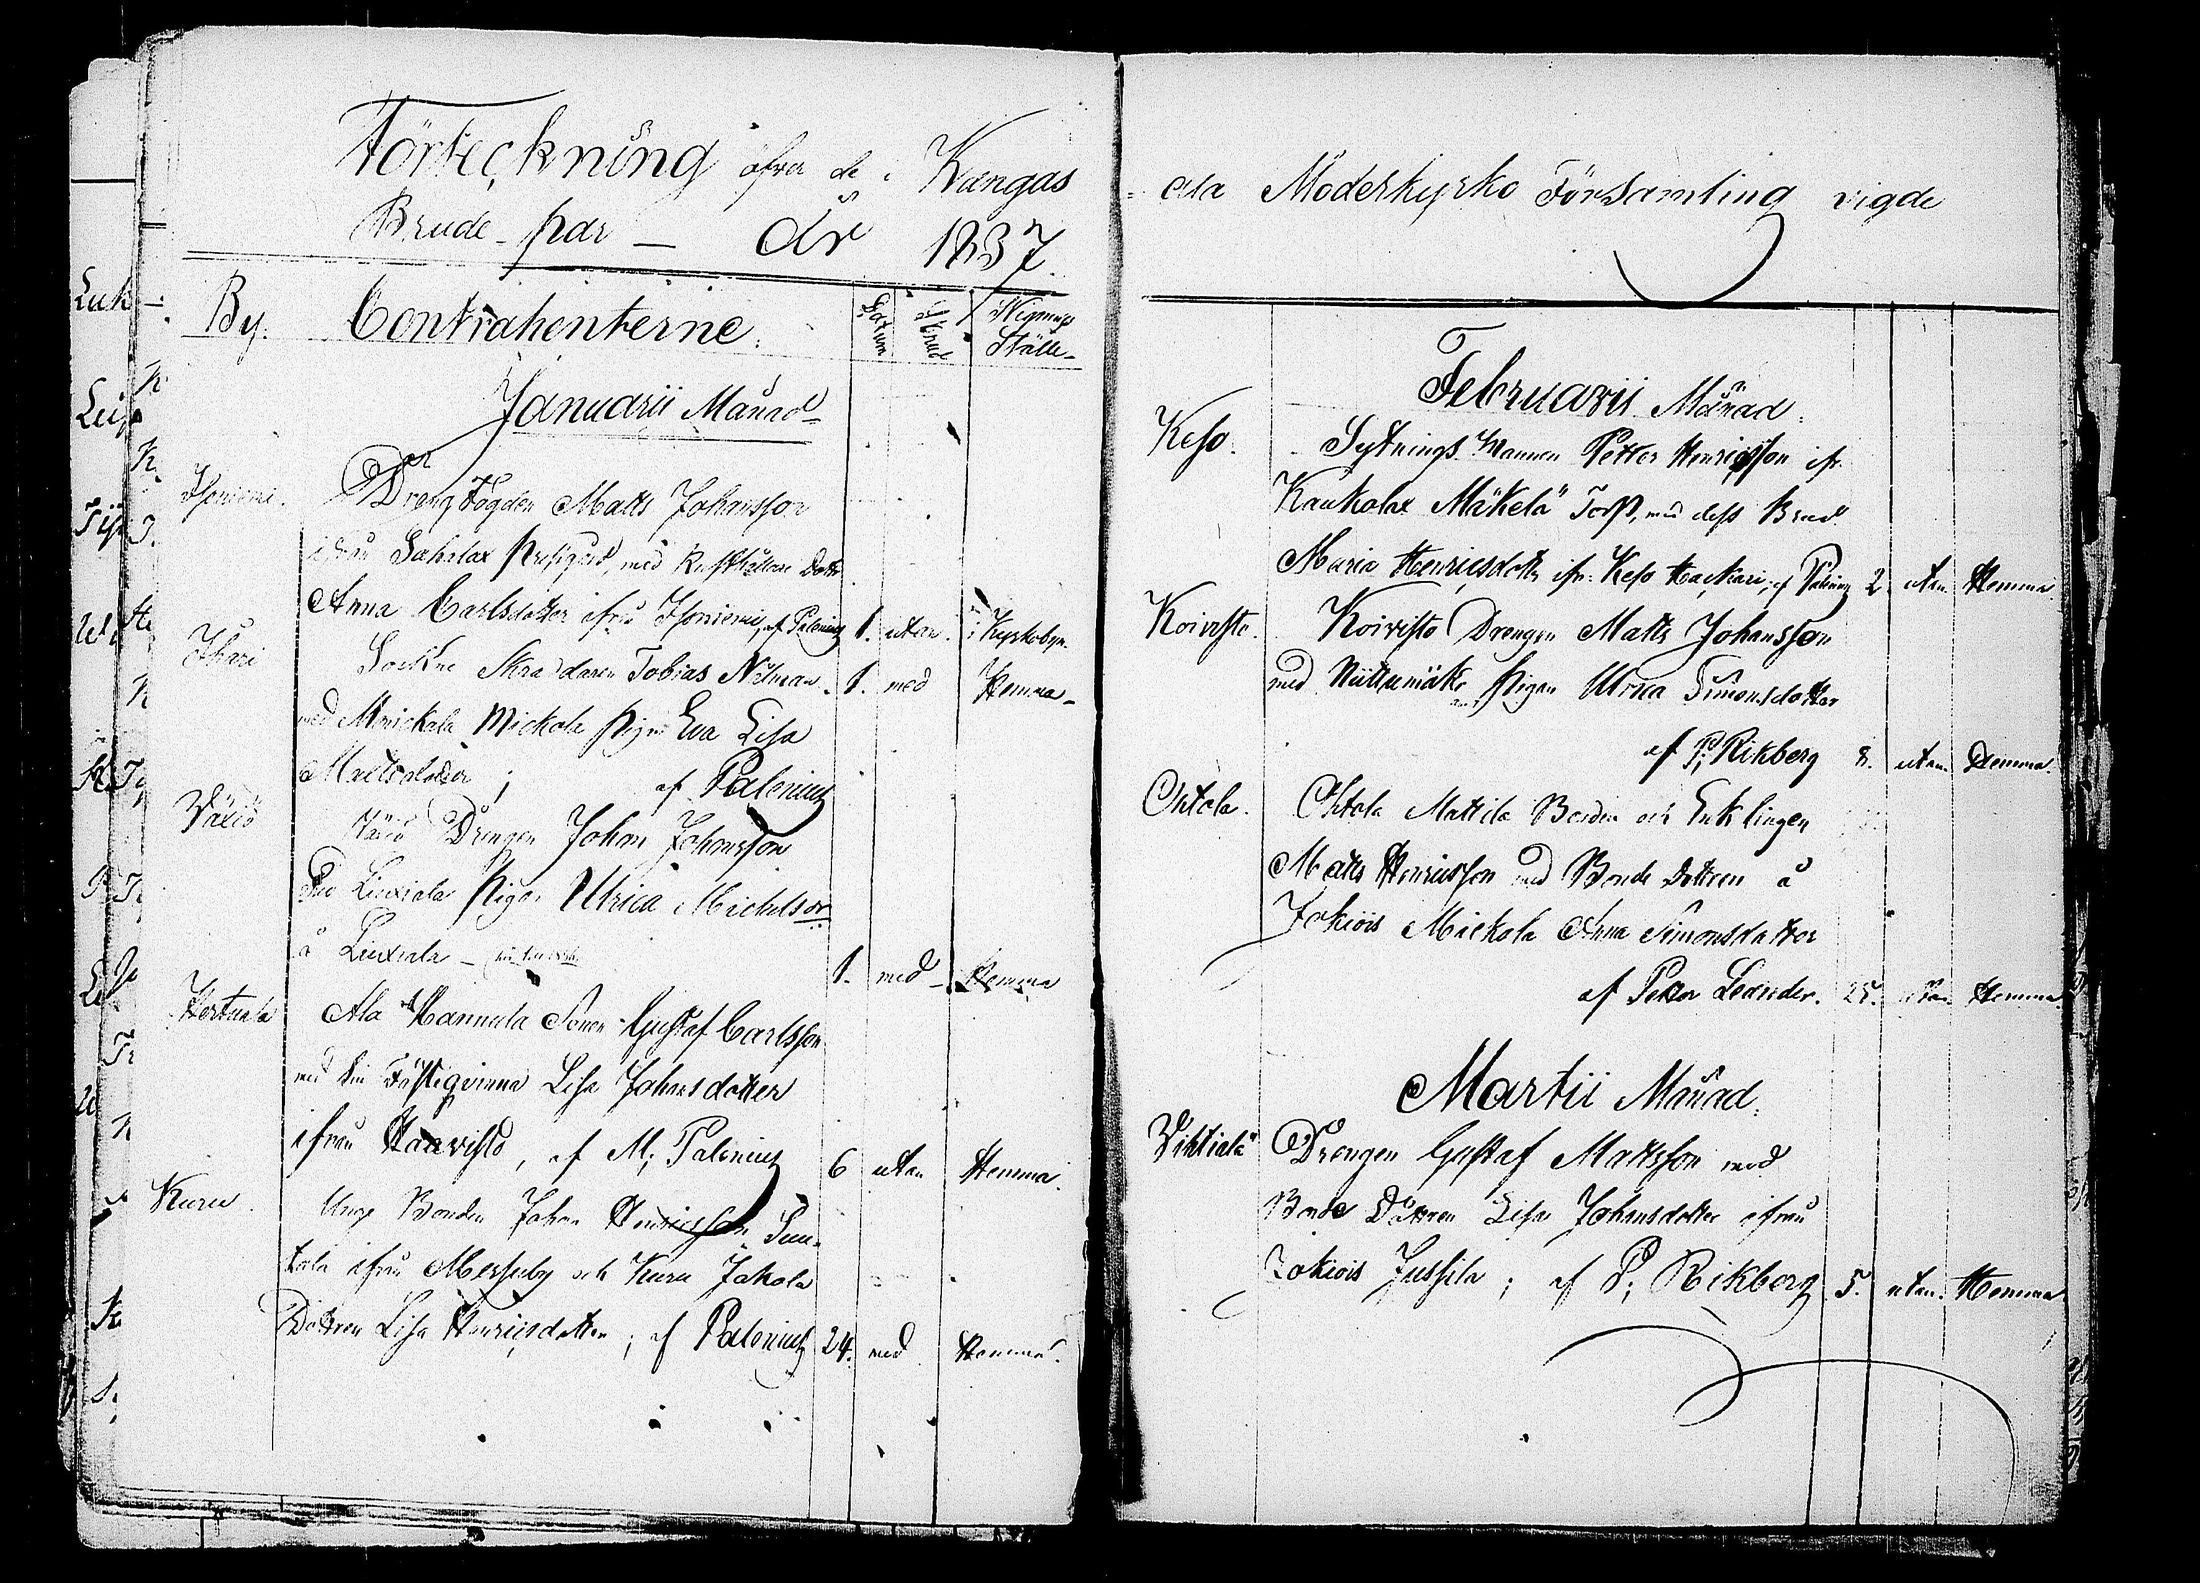 Förteckning öfver de i Kangas
Brude-par — År 1837.
By. Contrahenterne. Datum Skrud Wignings
Ställe
Januarii Månad
Isoniemi. Dreng Fogden Matts Johansson
ifrån Sahalax med Rusthållare Dottr
Anna Carlsdotter ifrån Isoniemi, af Palenius 1. utan i Kyrkobyn.
Ihari Sockne Skraddaren Tobias Nilman 1. med Hemma
med Mickola Pigan Eva Lisa
Mattsdotter; af Palenius
Växiö Växiö Drengen Johan Johansson
Liuxiala Pigan Ulrica Michelsdr
å Liuxiala — 1. med Hemma
Hertuala Ala Hannula Sonen Gustaf Carlsson
med sin Fästeqvinna Lisa Johansdotter
ifrån Haavisto, af M; Palenius 6 utan Hemma.
Kuru. Unge Bonden Johan Henricsson Pun-
tala ifrån Mersuby och Kuru Jakola
Dottren Lisa Henricsdotter; af Palenius 24. med Hemma.
ala Moderkyrko Församling vigde
Februarii Månad.
Keso. Sytnings Mannen Petter Henricsson ifr.
Kaukolax Mäkelä Torp, med dess Brud
Maria Henricsdottr ifr: Keso Hackari, af Palenius 2. utan Hemma.
Koivisto. Koivisto Drengen Matts Johansson
med Niittumäki Pigan Ulrica Simonsdotter
af P; Rikberg 8. utan Hemma.
Ohtola. Ohtola Mattila Bonden och Enklingen
Matts Henricsson med Bonde Dottren å
Jokiois Mickola Anna Simonsdotter
af Petter Leander. 25. utan Hemma
Martii Månad.
Vihtiälä Drengen Gustaf Mattsson med
Bonde Dottren Lisa Johansdotter ifrån
Jokiois Jussila; af P; Rikberg 5. utan. Hemma